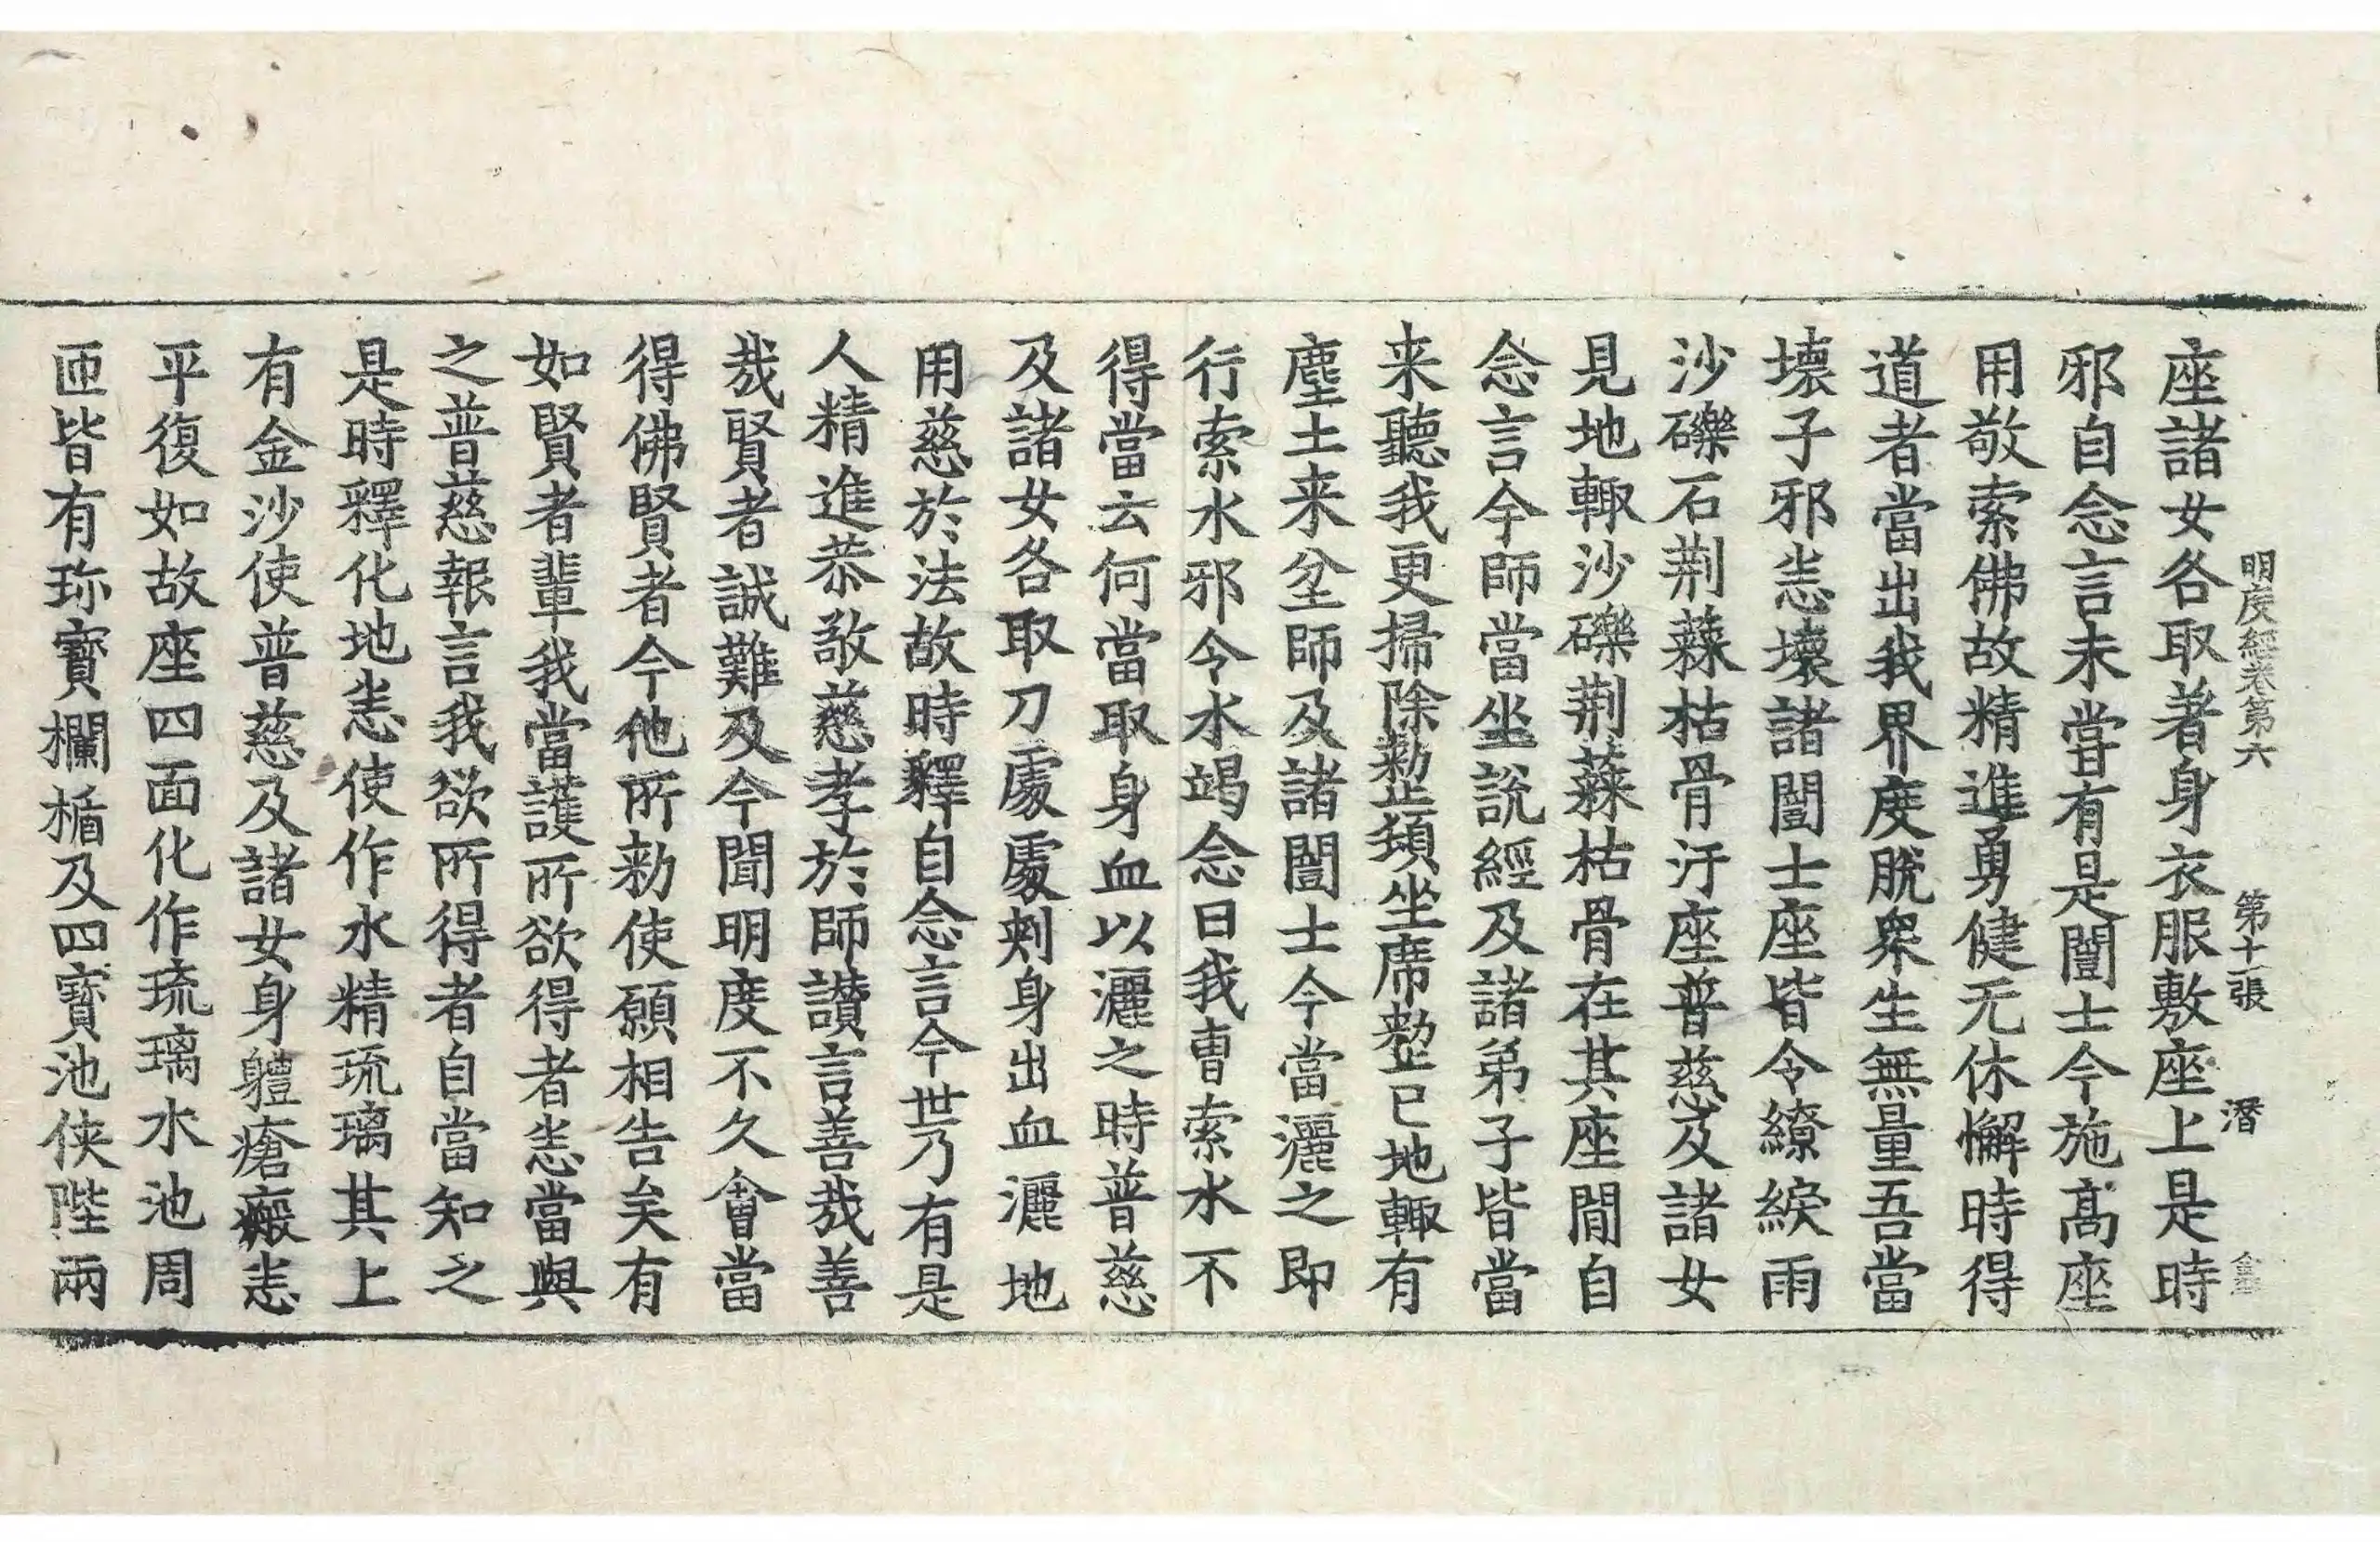 明度經卷第六　第十一張　潛
座諸女各取著身衣服敷座上是時
邪自念言未甞有是闓士今施高座
用敬索佛故精進勇健无休懈時得
道者當出我界度脫衆生無量吾當
壞子邪恚壞諸闓士座皆令繚綟雨
沙礫石荆蕀枯骨汙座普慈及諸女
見地輙沙礫荆蕀枯骨在其座間自
念言今師當坐說經及諸弟子皆當
来聽我更掃除勑整頓坐席整已地輙有
塵土来坌師及諸闓士今當灑之即
行索水邪令水竭念曰我曹索水不
得當云何當取身血以灑之時普慈
及諸女各取刀處處刺身出血灑地
用慈於法故時釋自念言今世乃有是
人精進恭敬慈孝於師讃言善哉善
哉賢者誠難及今聞明度不久會當
得佛賢者今他所勑使願相告矣有
如賢者輩我當護所欲得者恚當與
之普慈報言我欲所得者自當知之
是時釋化地恚使作水精琉璃其上
有金沙使普慈及諸女身軆瘡瘢恚
平復如故座四面化作琉璃水池周
匝皆有珎寶欄楯及四寶池俠陛兩